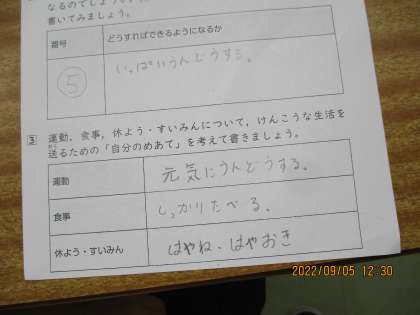 なるのでしょう。
書いてみましょう。
番号 どうすればできるようになるか
⑤ いっぱいうんどうする。
3 運動，食事，休よう・すいみんについて，けんこうな生活を
送るための「自分のめあて」を考えて書きましょう。
運動 元気にうんどうする。
食事 しっかりたべる。
休よう・すいみん はやね、はやおき
2022/09/05 12:30